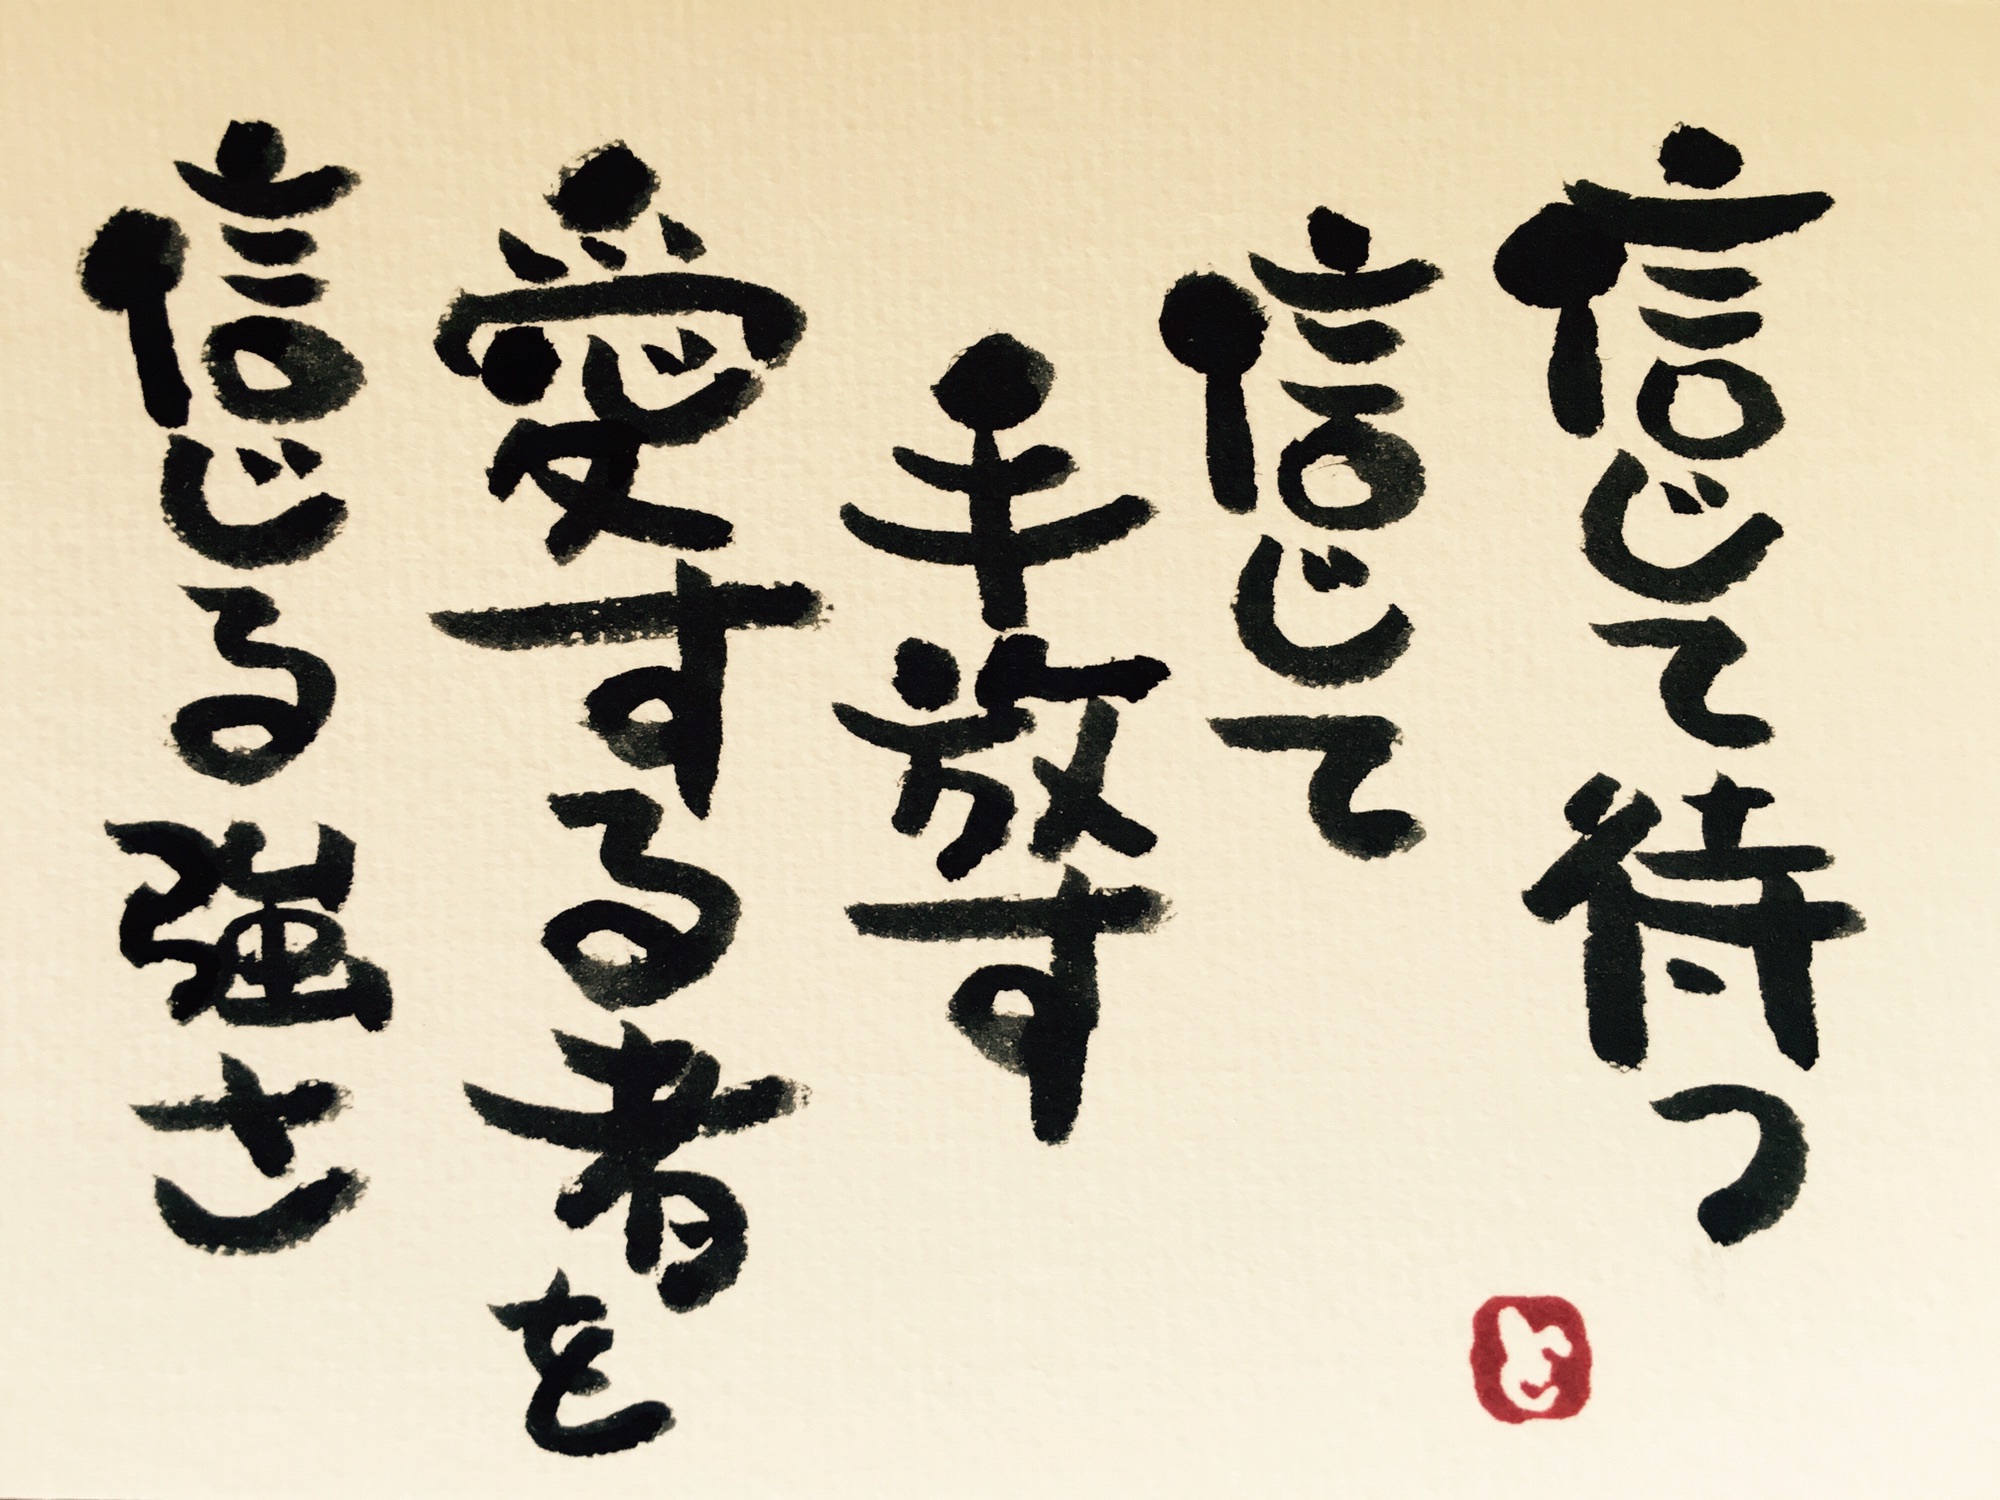 信じて待つ
信じて
手放す
愛する者を
信じる強さ